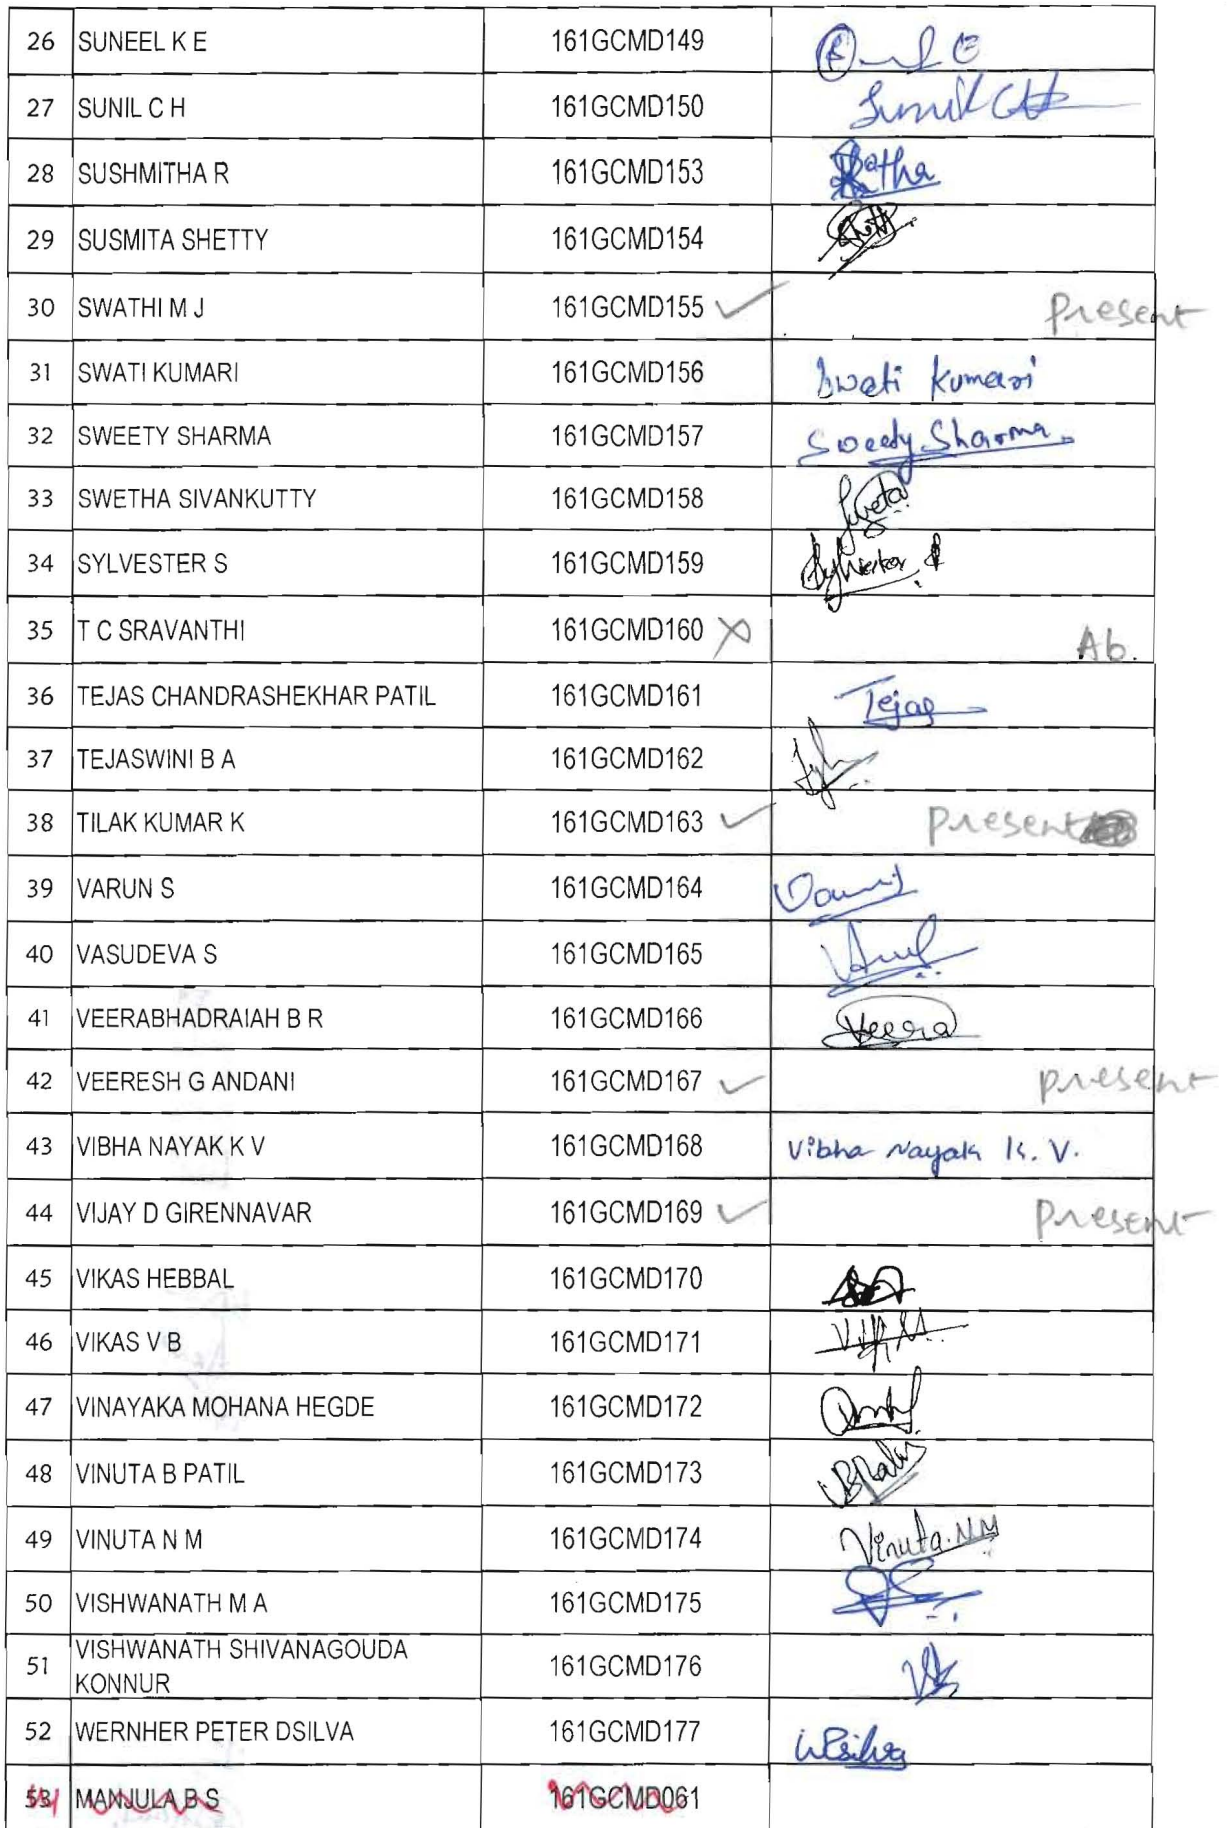 26 SUNEEL K E 161GCMD149
27 SUNIL C H 161GCMD150 Sunil CH
28 SUSHMITHA R 161GCMD153
29 SUSMITA SHETTY 161GCMD154
30 SWATHI M J 161GCMD155 ✓ Present
31 SWATI KUMARI 161GCMD156 Swati Kumari
32 SWEETY SHARMA 161GCMD157 Sweety Sharma.
33 SWETHA SIVANKUTTY 161GCMD158 Sweta
34 SYLVESTER S 161GCMD159 Sylvester S
35 T C SRAVANTHI 161GCMD160 X Ab.
36 TEJAS CHANDRASHEKHAR PATIL 161GCMD161 Tejas
37 TEJASWINI B A 161GCMD162
38 TILAK KUMAR K 161GCMD163 ✓ Present
39 VARUN S 161GCMD164
40 VASUDEVA S 161GCMD165
41 VEERABHADRAIAH B R 161GCMD166 Veera
42 VEERESH G ANDANI 161GCMD167 ✓ present
43 VIBHA NAYAK K V 161GCMD168 Vibha Nayak K. V.
44 VIJAY D GIRENNAVAR 161GCMD169 ✓ Present
45 VIKAS HEBBAL 161GCMD170
46 VIKAS V B 161GCMD171
47 VINAYAKA MOHANA HEGDE 161GCMD172
48 VINUTA B PATIL 161GCMD173
49 VINUTA N M 161GCMD174 Vinuta.NM
50 VISHWANATH M A 161GCMD175
51 VISHWANATH SHIVANAGOUDA
KONNUR 161GCMD176
52 WERNHER PETER DSILVA 161GCMD177
53 MANJULA B S 161GCMD061